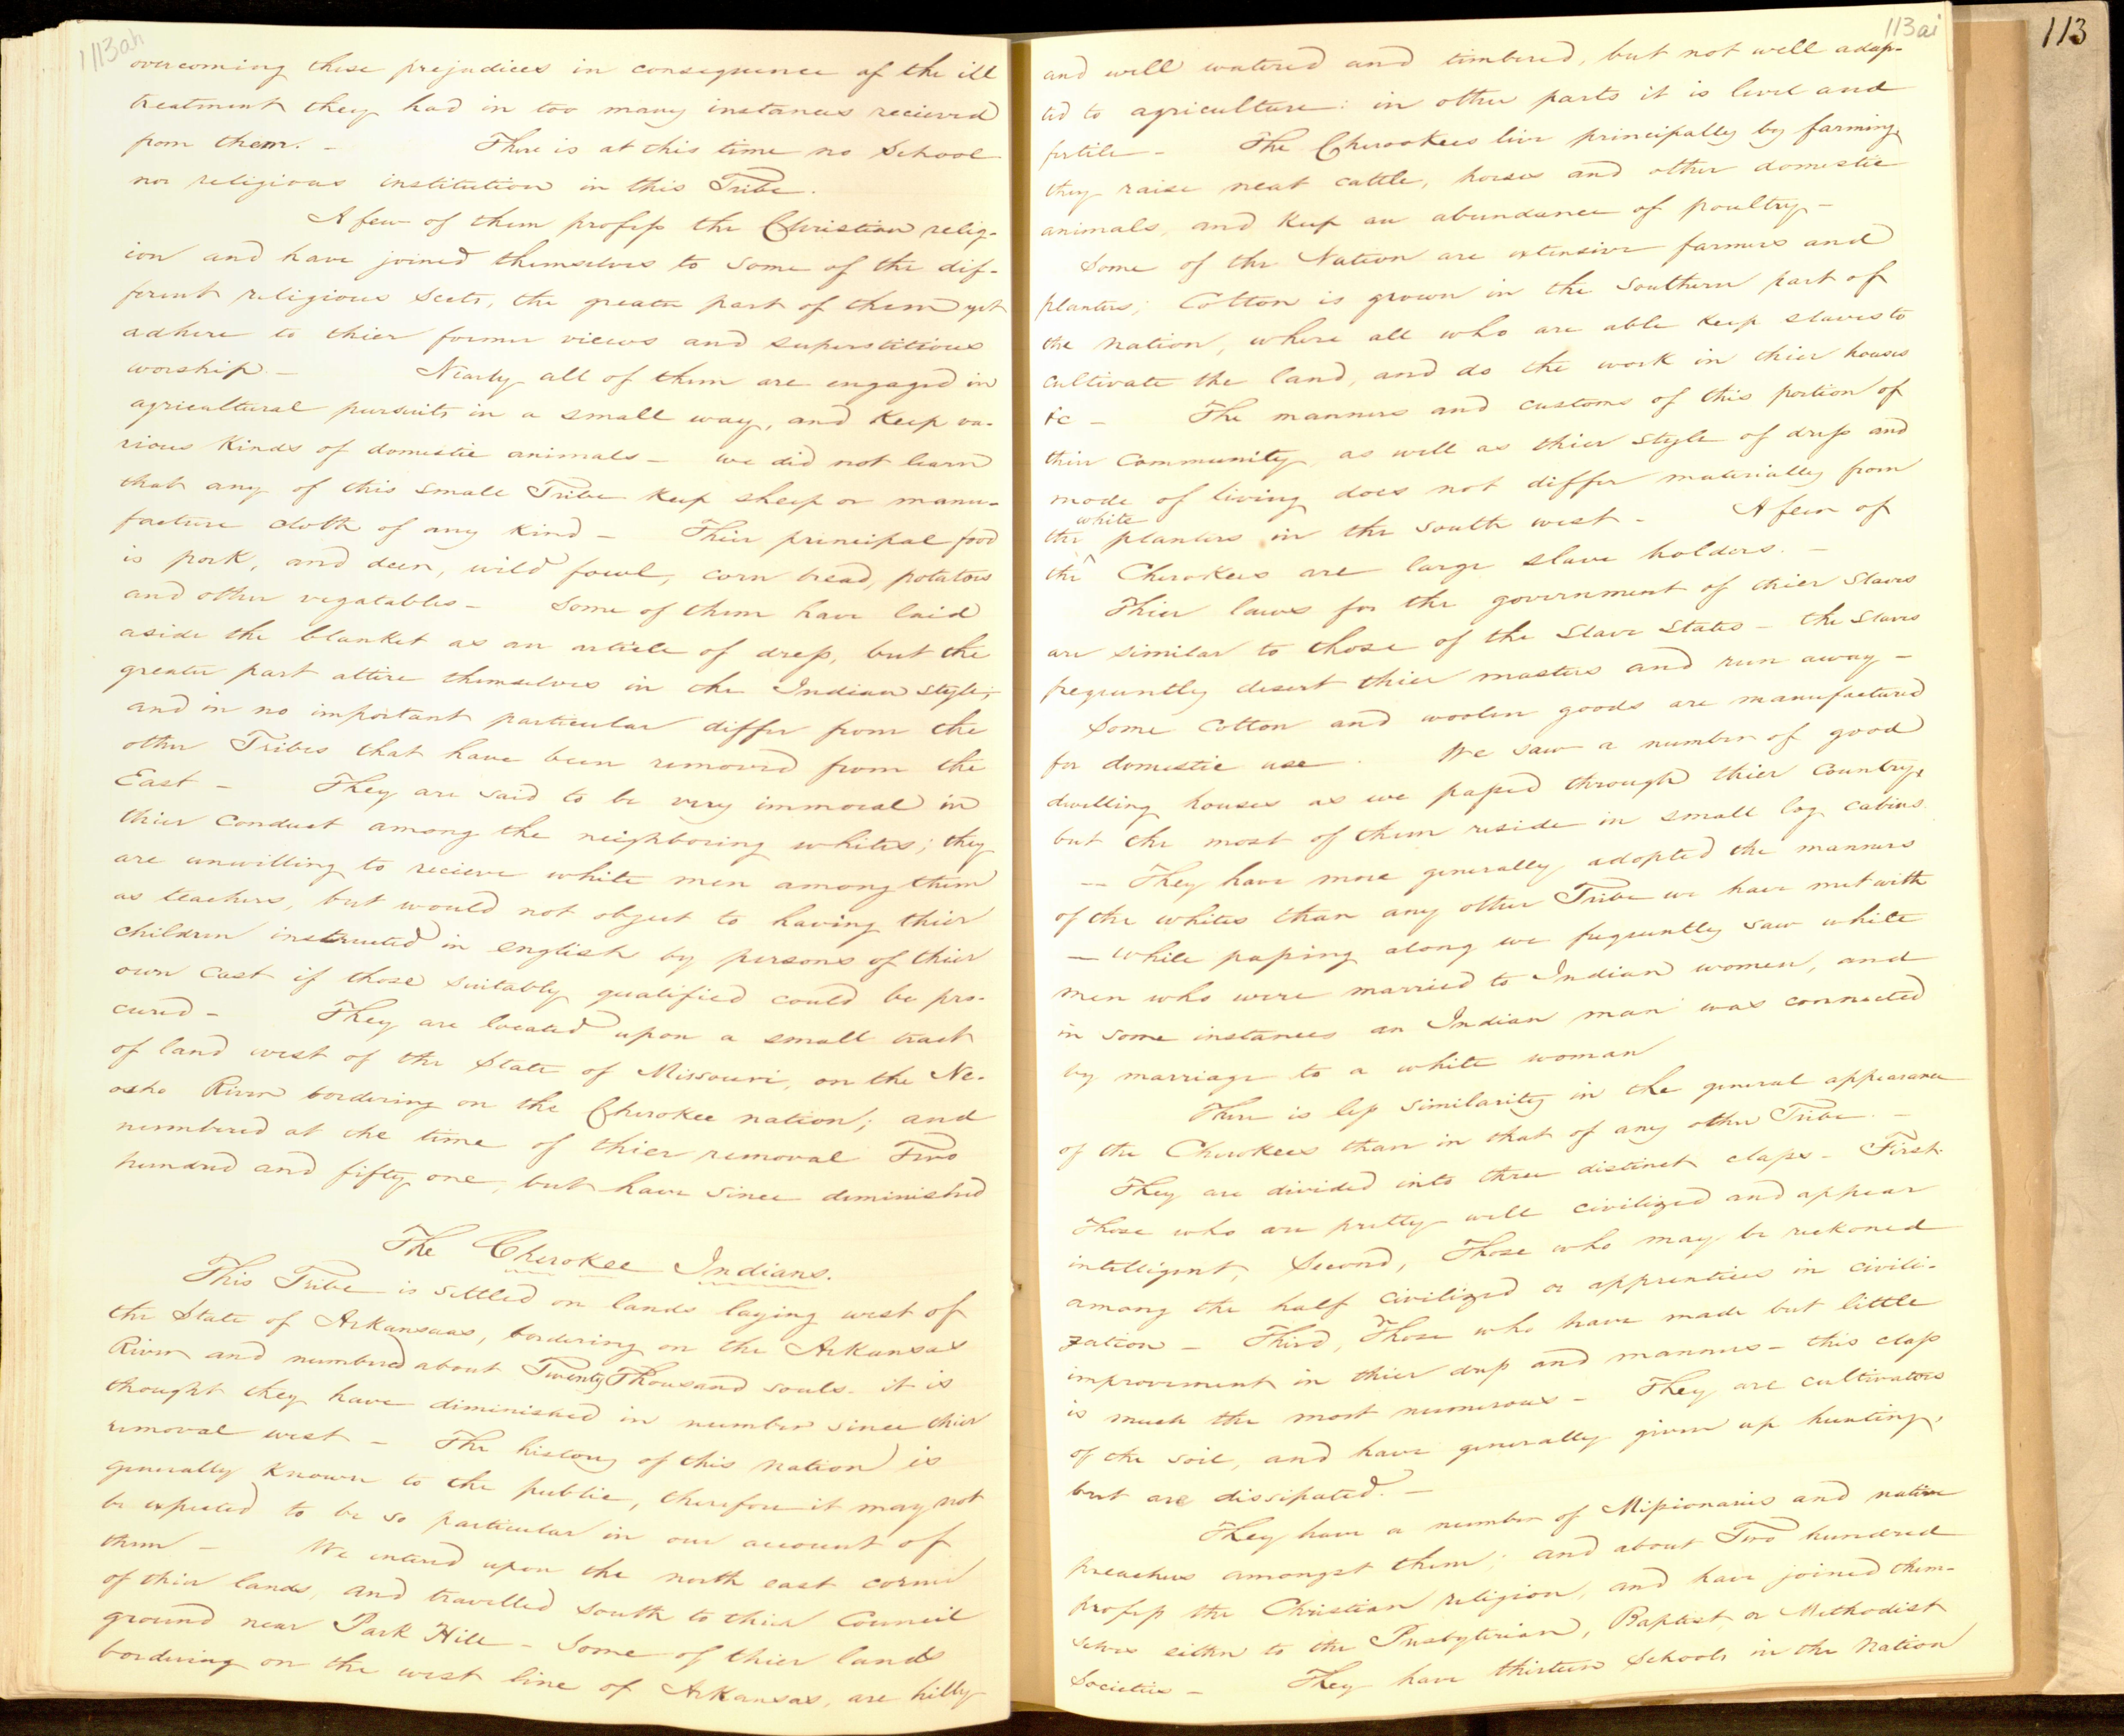 113ah
overcoming these prejudices in consequence of the ill
treatment they had in too many instances recieved
from them. - There is at this time no School
nor religious institution in this Tribe.
A few of them profess the Christian relig-
ion and have joined themselves to some of the dif-
ferent religious Sects, the greater part of them yet
adhere to thier former views and superstitious
worship - Nearly all of them are engaged in
agricultural pursuits in a small way, and Keep va-
rious Kinds of domestic animals - we did not learn
that any of this small Tribe Keep sheep or manu-
facture cloth of any Kind - Their principal food
is pork, and deer, wild fowl, corn bread, potatoes
and other vegatables - Some of them have laid
aside the blanket as an article of dress, but the
greater part attire themselves in the Indian style;
and in no important particular differ from the
other Tribes that have been removed from the
East - They are said to be very immoral in
thier conduct among the neighboring whites; they
are unwilling to recieve white men among them
as teachers, but would not object to having thier
children instructed in english by persons of thier
own cast if those suitably qualified could be pro-
cured - They are located upon a small tract
of land west of the State of Missouri, on the Ne-
osho River bordering on the Cherokee nation; and
numbered at the time of thier removal Two
hundred and fifty one, but have since deminished
The Cherokee Indians.
This Tribe is settled on lands laying west of
the State of Arkansaas, bordering on the Arkansas
River and numbered about Twenty Thousand souls. it is
thought they have diminished in number since thier
removal west - The history of this nation is
generally Known to the public, therefore it may not
be expected to be so particular in our account of
them - We entered upon the north east corner
of thier lands, and travelled South to thier Council
ground near Park Hill - Some of thier lands
bordering on the west line of Arkansas, are hilly
113ai
113
and well watered and timbered, but not well adap-
ted to agriculture: in other parts it is level and
fertile - The Cherokees live principally by farming
they raise neat cattle, horses and other domestic
animals, and Keep an abundance of poultry -
Some of the Nation are extensive farmers and
planters; Cotton is grown in the Southern part of
the nation, where all who are able Keep slaves to
cultivate the land, and do the work in thier houses
&c - The manners and customs of this portion of
thier Community, as well as thier style of dress and
mode of living does not differ materially from
white
the planters in the South west - A few of
the Cherokees are large slave holders. -
Thier laws for the government of thier Slaves
are similar to those of the Slave States - the Slaves
frequently desert thier masters and run away -
Some Cotton and woolen goods are manufactured
for domestic use. We saw a number of good
dwelling houses as we passed through thier Country,
but the most of them reside in small log cabins.
- They have more generally adopted the manners
of the whites than any other Tribe we have met with
- While passing along we frequently saw white
men who were married to Indian women, and
in some instances an Indian man was connected
by marriage to a white woman
There is less similarity in the general appearance
of the Cherokees than in that of any other Tribe. -
They are divided into three distinct class - First.
Those who are pretty well civilized and appear
intelligent, Second, Those who may be reckoned
among the half civilized or apprentices in civili-
zation - Third, Those who have made but little
improvement in thier dress and manners - this class
is much the most numerous - They are cultivators
of the soil, and have generally given up hunting,
but are dissipated. -
They have a number of Missionaries and native
preachers amongst them; and about Two hundred
profess the Christian religion, and have joined them-
selves either to the Presbyterian, Baptist or Methodist
Societies - They have thirteen Schools in the Nation